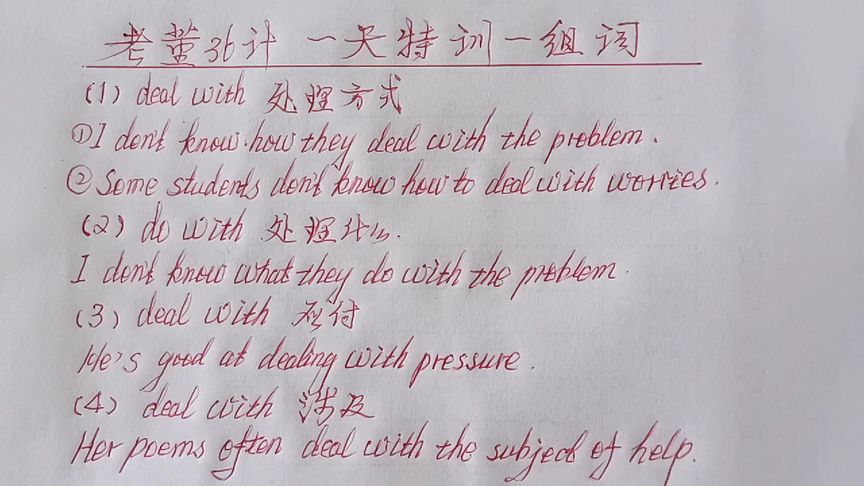 考堂36计 一天特训一组词
(1) deal with 处理方式
①I don't know how they deal with the problem.
②Some students don't know how to deal with worries.
(2) do with 处理什么.
I don't know what they do with the problem.
(3) deal with 应付
He's good at dealing with pressure.
(4) deal with 涉及
Her poems often deal with the subject of help.